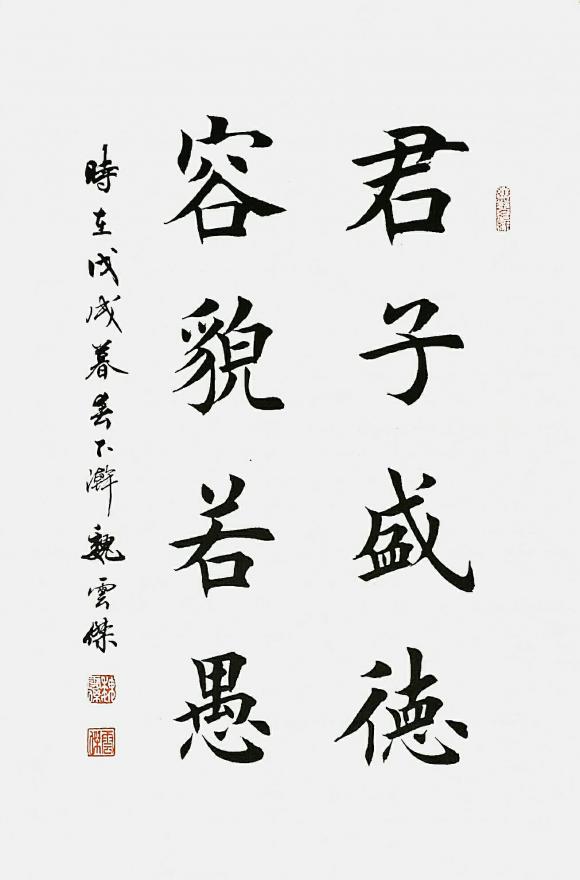 君子盛徳
容貌若愚
時在戊戌暮春下澣魏雲傑